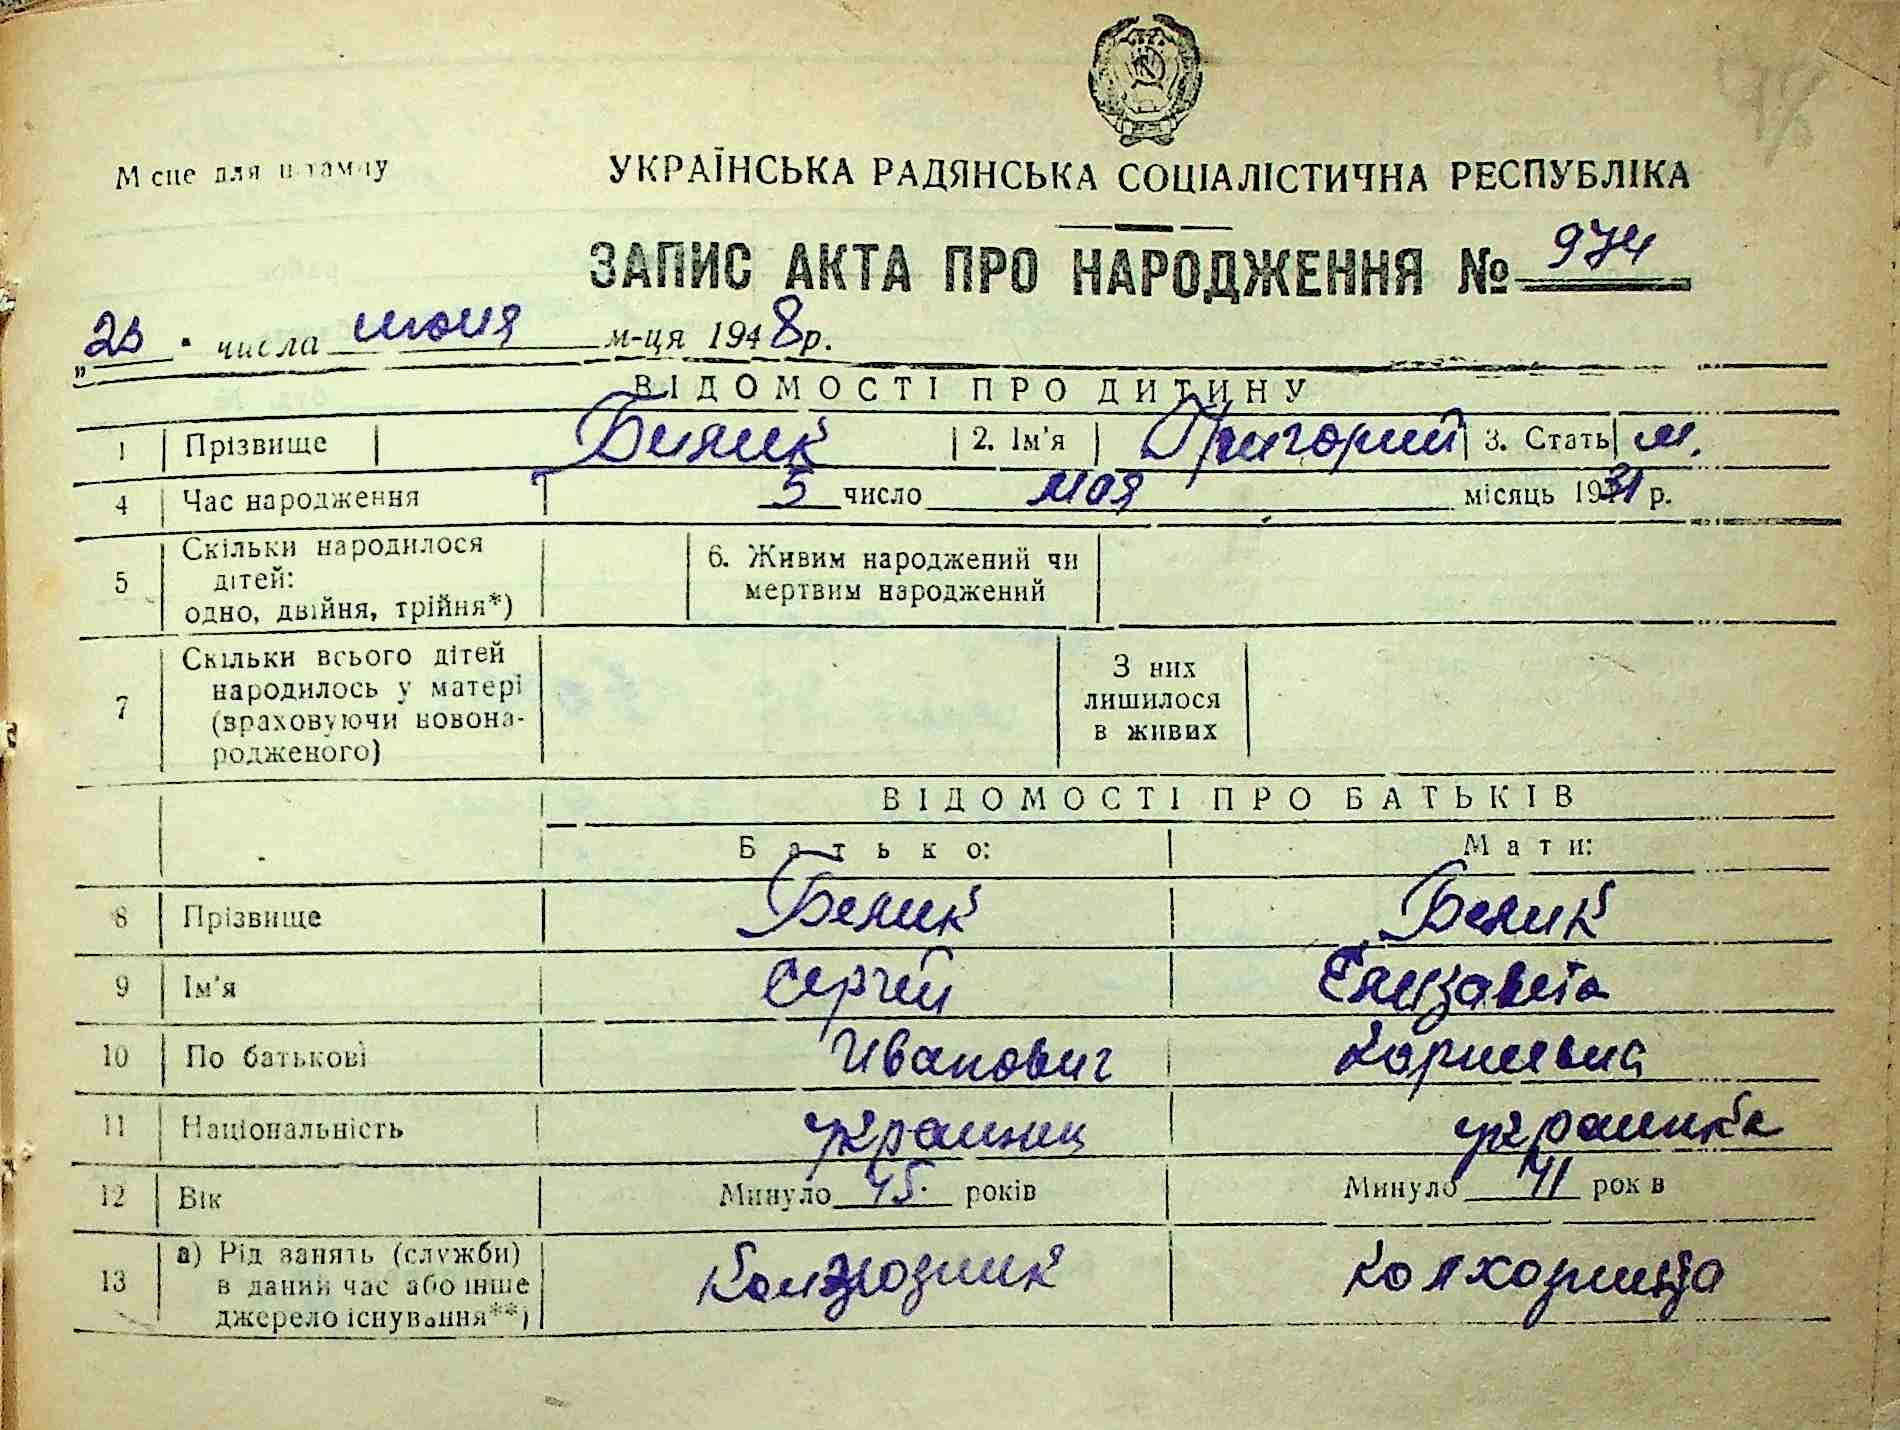 Місце для штампу
УКРАЇНСЬКА РАДЯНСЬКА СОЦІАЛІСТИЧНА РЕСПУБЛІКА
ЗАПИС АКТА ПРО НАРОДЖЕННЯ № 974
„ числа июня м-ця 1948 р.
ВІДОМОСТІ ПРО ДИТИНУ
1 Прізвище Билик 2. Ім'я Григорий 3. Стать м.
4 Час народження 5 число мая місяць 1931 р.
5 Скільки народилося дітей: одно, двійня, трійня*) 6. Живим народжений чи мертвим народжений
7 Скільки всього дітей народилось у матері (враховуючи новонародженого) З них лишилося в живих
ВІДОМОСТІ ПРО БАТЬКІВ
Батько: Мати:
8 Прізвище Белик Белик
9 Ім'я Сергей Елизавета
10 По батькові Иванович Корнеевна
11 Національність украинец украинка
12 Вік Минуло 45. років Минуло 41 років
13 а) Рід занять (служби) в даний час або інше джерело існування**) колхозник колхозница